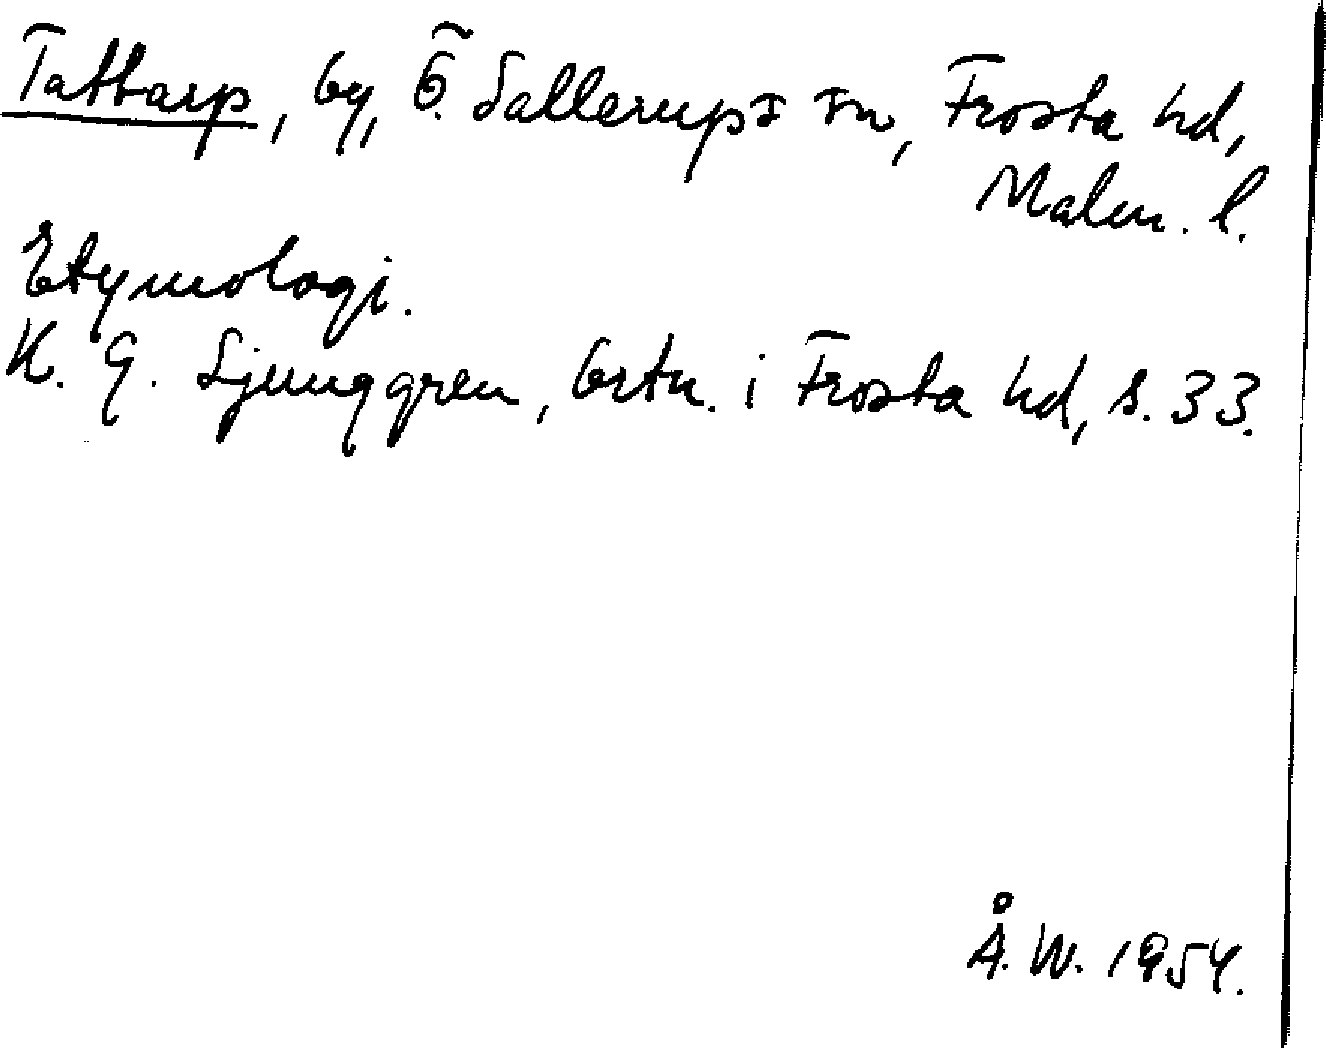 Tattarp, by, Ö. Sallerups sn, Frosta hd,
Malm. l.
Etymologi.
K. G. Ljunggren, Ortn. i Frosta hd, s. 33.
Å. W. 1954.